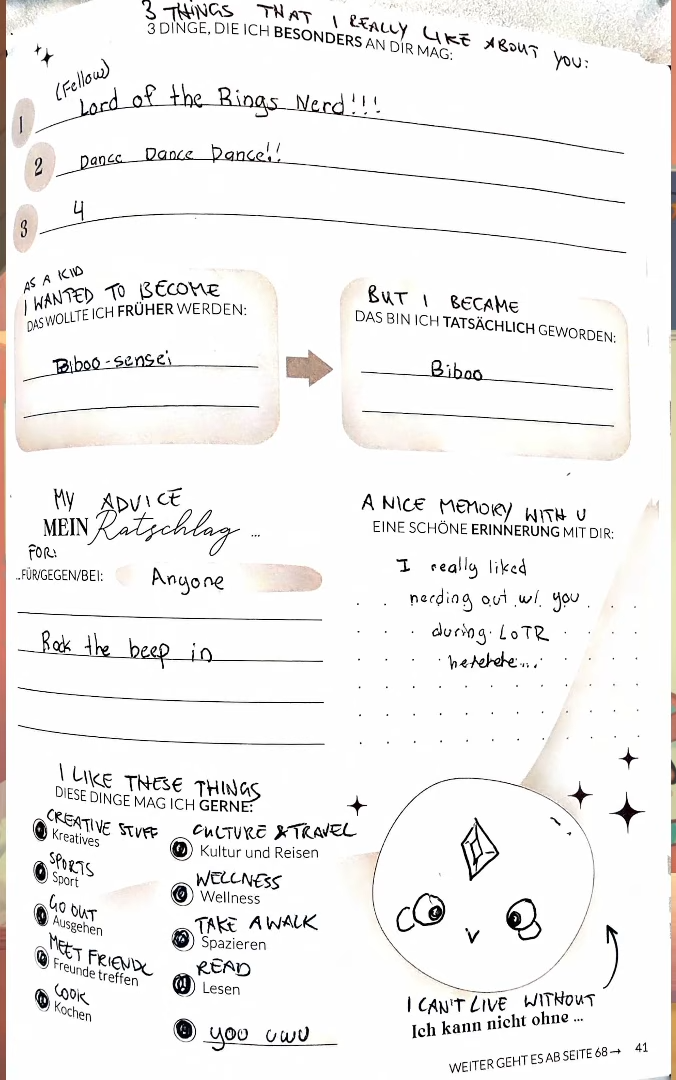 3 THINGS THAT I REALLY LIKE ABOUT YOU:
3 DINGE, DIE ICH BESONDERS AN DIR MAG:
(Fellow)
1 Lord of the Rings Nerd!!!
2 Dance Dance Dance!!
3 4
AS A KID
I WANTED TO BECOME
DAS WOLLTE ICH FRÜHER WERDEN:
Biboo-sensei
BUT I BECAME
DAS BIN ICH TATSÄCHLICH GEWORDEN:
Biboo
MY ADVICE
MEIN Ratschlag ...
FOR:
...FÜR/GEGEN/BEI: Anyone
Rock the beep in
A NICE MEMORY WITH U
EINE SCHÖNE ERINNERUNG MIT DIR:
I really liked
nerding out w/ you
during LoTR
hehehehe...
I LIKE THESE THINGS
DIESE DINGE MAG ICH GERNE:
CREATIVE STUFF
Kreatives
SPORTS
Sport
GO OUT
Ausgehen
MEET FRIENDS
Freunde treffen
COOK
Kochen
CULTURE & TRAVEL
Kultur und Reisen
WELLNESS
Wellness
TAKE A WALK
Spazieren
READ
Lesen
you uwu
I CAN'T LIVE WITHOUT
Ich kann nicht ohne ...
WEITER GEHT ES AB SEITE 68→ 41